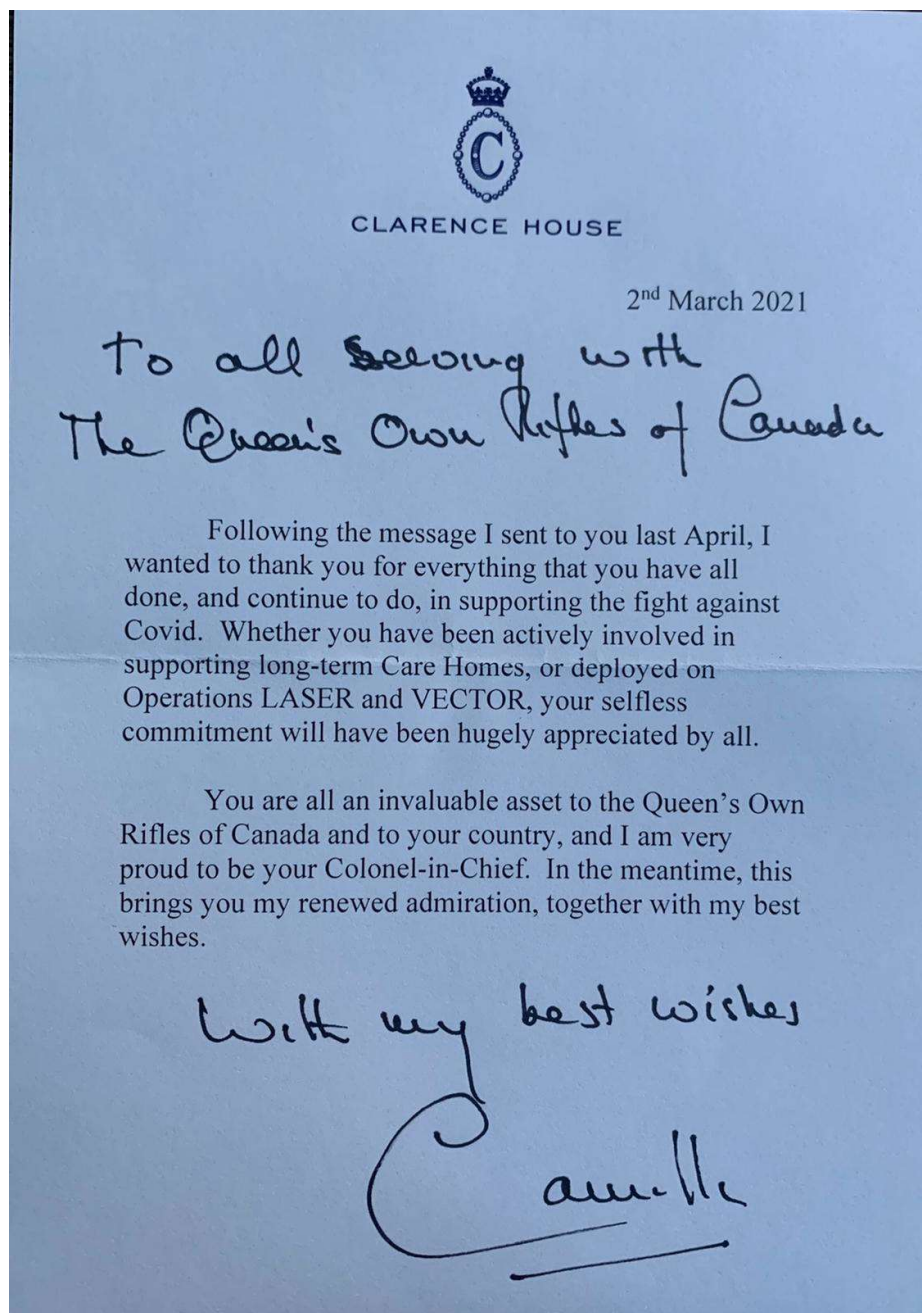 C
CLARENCE HOUSE
2nd March 2021
To all serving with
The Queen's Own Rifles of Canada
Following the message I sent to you last April, I
wanted to thank you for everything that you have all
done, and continue to do, in supporting the fight against
Covid. Whether you have been actively involved in
supporting long-term Care Homes, or deployed on
Operations LASER and VECTOR, your selfless
commitment will have been hugely appreciated by all.
You are all an invaluable asset to the Queen's Own
Rifles of Canada and to your country, and I am very
proud to be your Colonel-in-Chief. In the meantime, this
brings you my renewed admiration, together with my best
wishes.
With my best wishes
Camilla